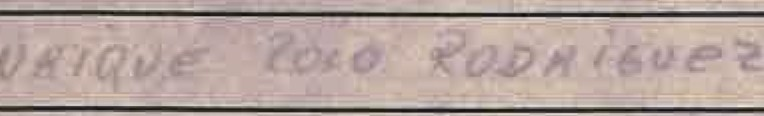 NRIQUE POLO RODRIGUEZ